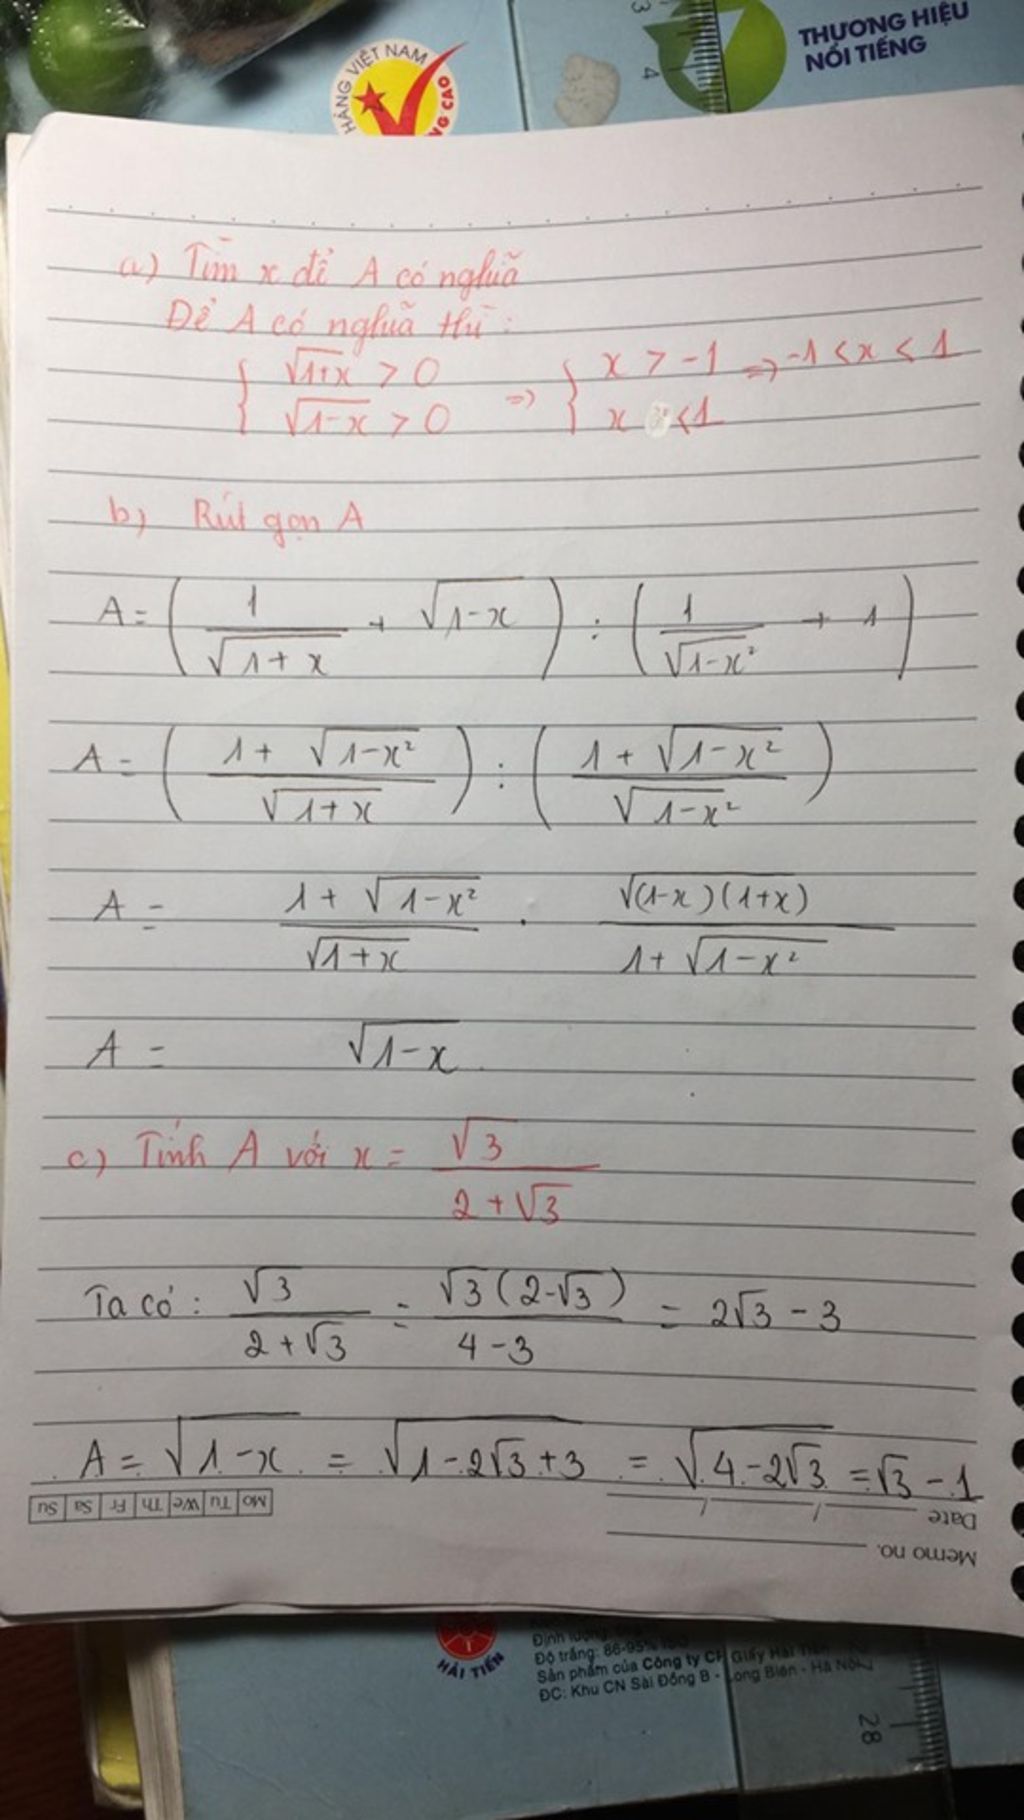 THƯƠNG HIỆU
NỔI TIẾNG
HÀNG VIỆT NAM
NG CAO
3 4
a) Tìm x để A có nghĩa
Để A có nghĩa thì :
{ √(1+x) > 0 => { x > -1 => -1 < x < 1
{ √(1-x) > 0 { x < 1
b) Rút gọn A
A = ( 1/√(1+x) + √(1-x) ) : ( 1/√(1-x²) + 1 )
A = ( (1 + √(1-x²))/√(1+x) ) : ( (1 + √(1-x²))/√(1-x²) )
A = (1 + √(1-x²))/√(1+x) . √((1-x)(1+x))/(1 + √(1-x²))
A = √(1-x)
c) Tính A với x = √3/(2+√3)
Ta có : √3/(2+√3) = √3(2-√3)/(4-3) = 2√3 - 3
A = √(1-x) = √(1-2√3+3) = √(4-2√3) = √3 - 1
Mo Tu We Th Fr Sa Su
Date / /
Memo no.
HẢI TIẾN
Độ trắng: 86-95% ISO
Sản phẩm của Công ty CP Giấy Hải Tiến
ĐC: Khu CN Sài Đồng B - Long Biên - Hà Nội
28